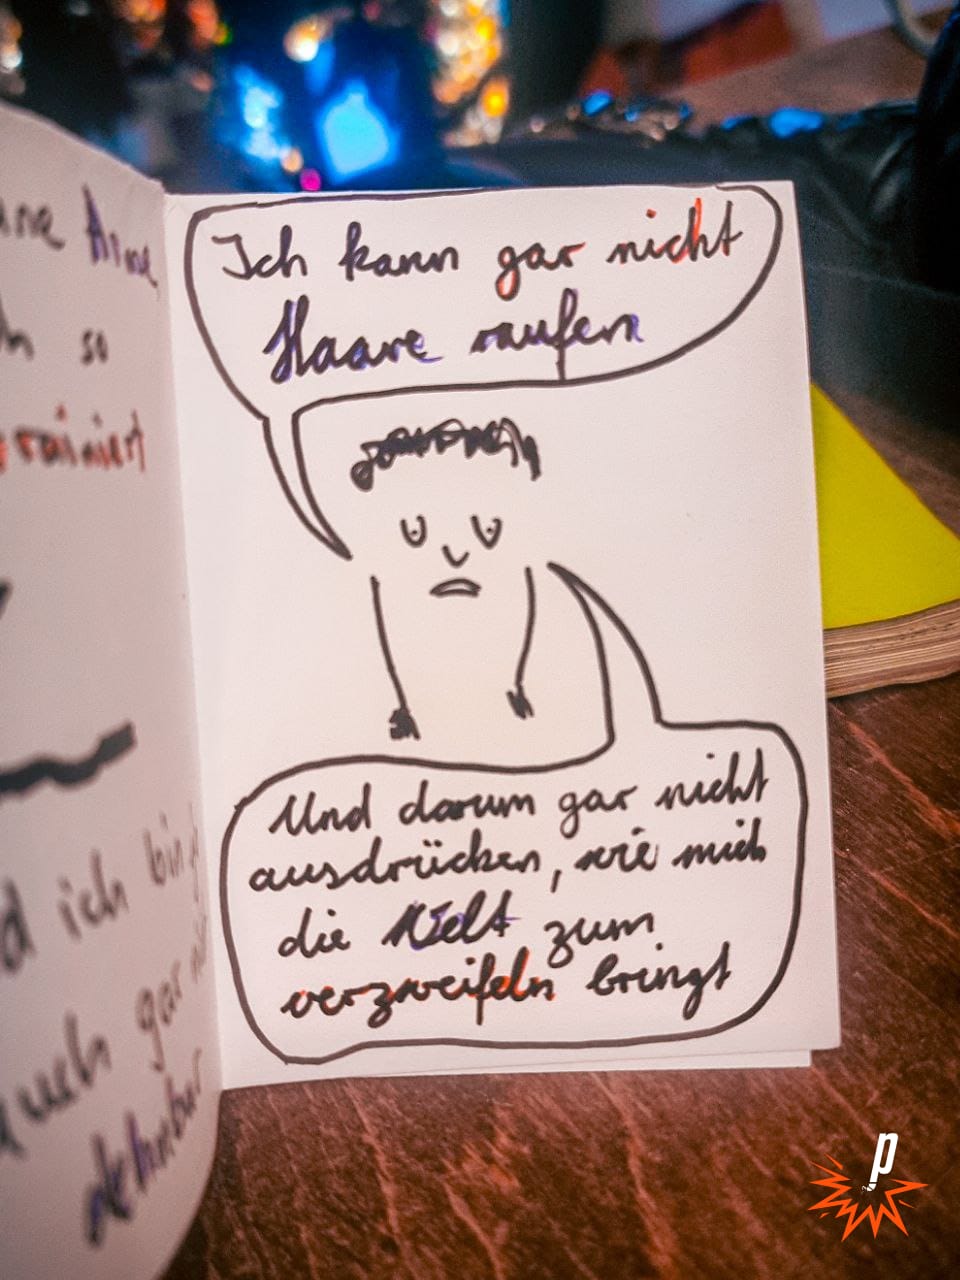 Arme
so
Ich kann gar nicht
Haare raufen
Und darum gar nicht
ausdrücken, wie mich
die Welt zum
verzweifeln bringt
ich bin
auch gar
dehnbar
p